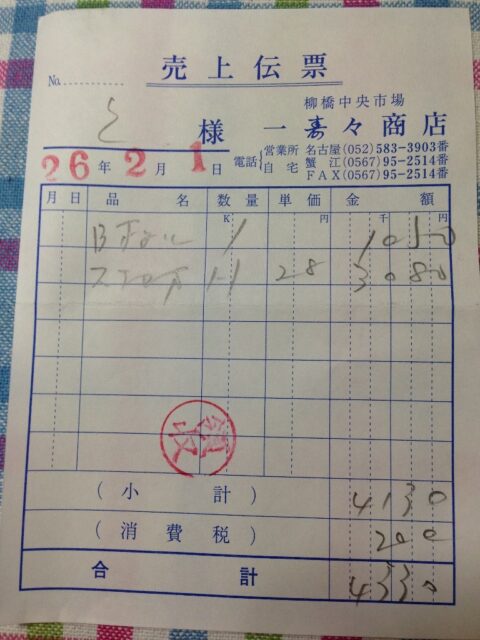 売上伝票
No.
柳橋中央市場
様 一寿々商店
電話 営業所 名古屋(052)583-3903番
自宅 蟹江(0567)95-2514番
FAX(0567)95-2514番
26年2月1日
月 日 品名 数量 単価 金額
K 円 千 円
1 1050
11 28 3080
(小計) 4130
(消費税) 200
合計 4330